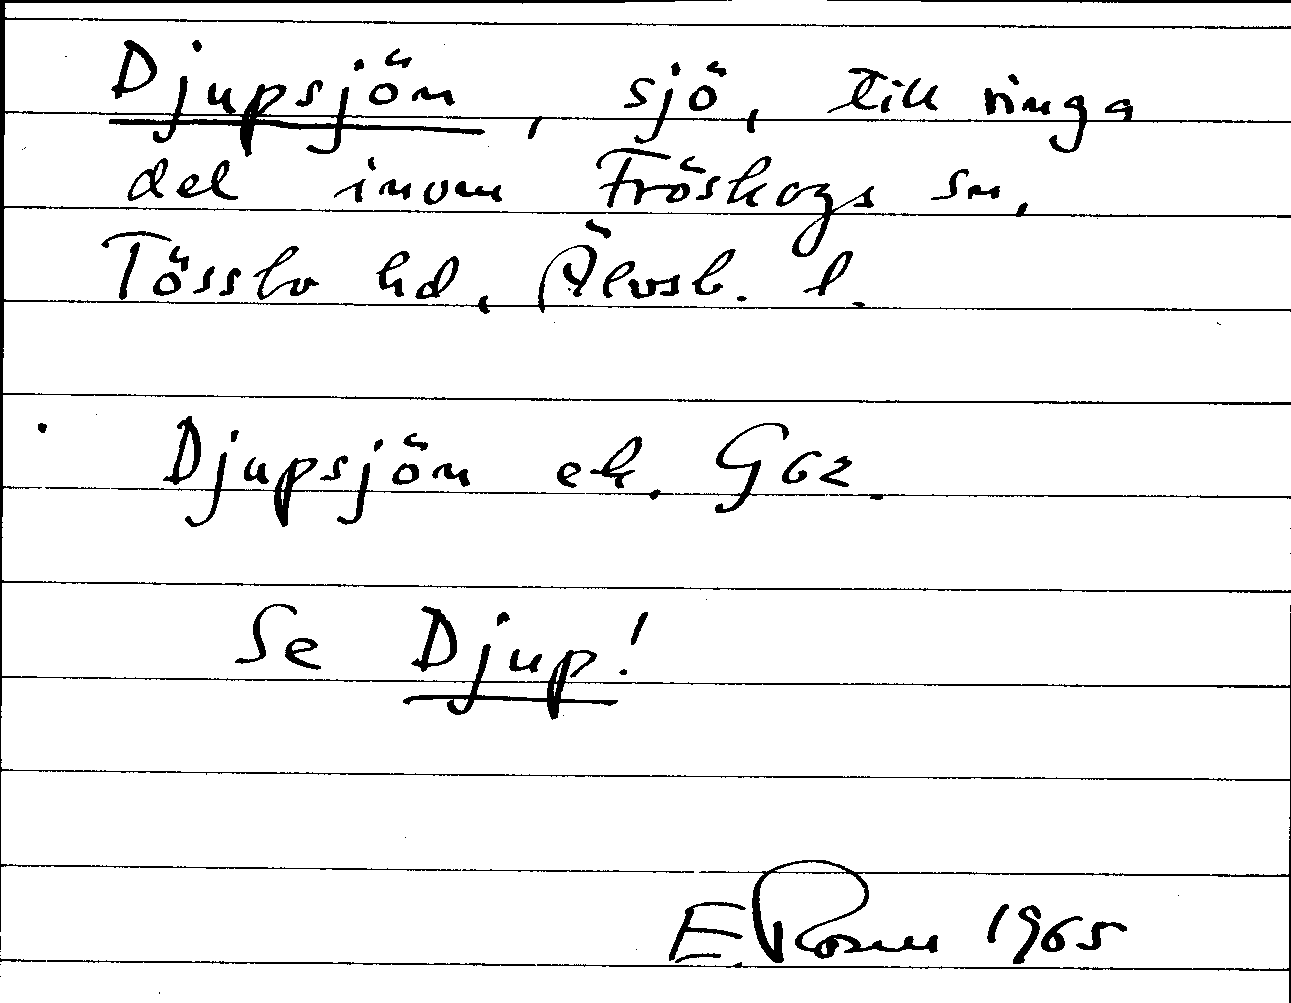 Djupsjön, sjö, till ringa
del inom Fröskogs sn,
Tössbo hd, Älvsb. l.
Djupsjön ek. G62.
Se Djup!
E. Rosell 1965